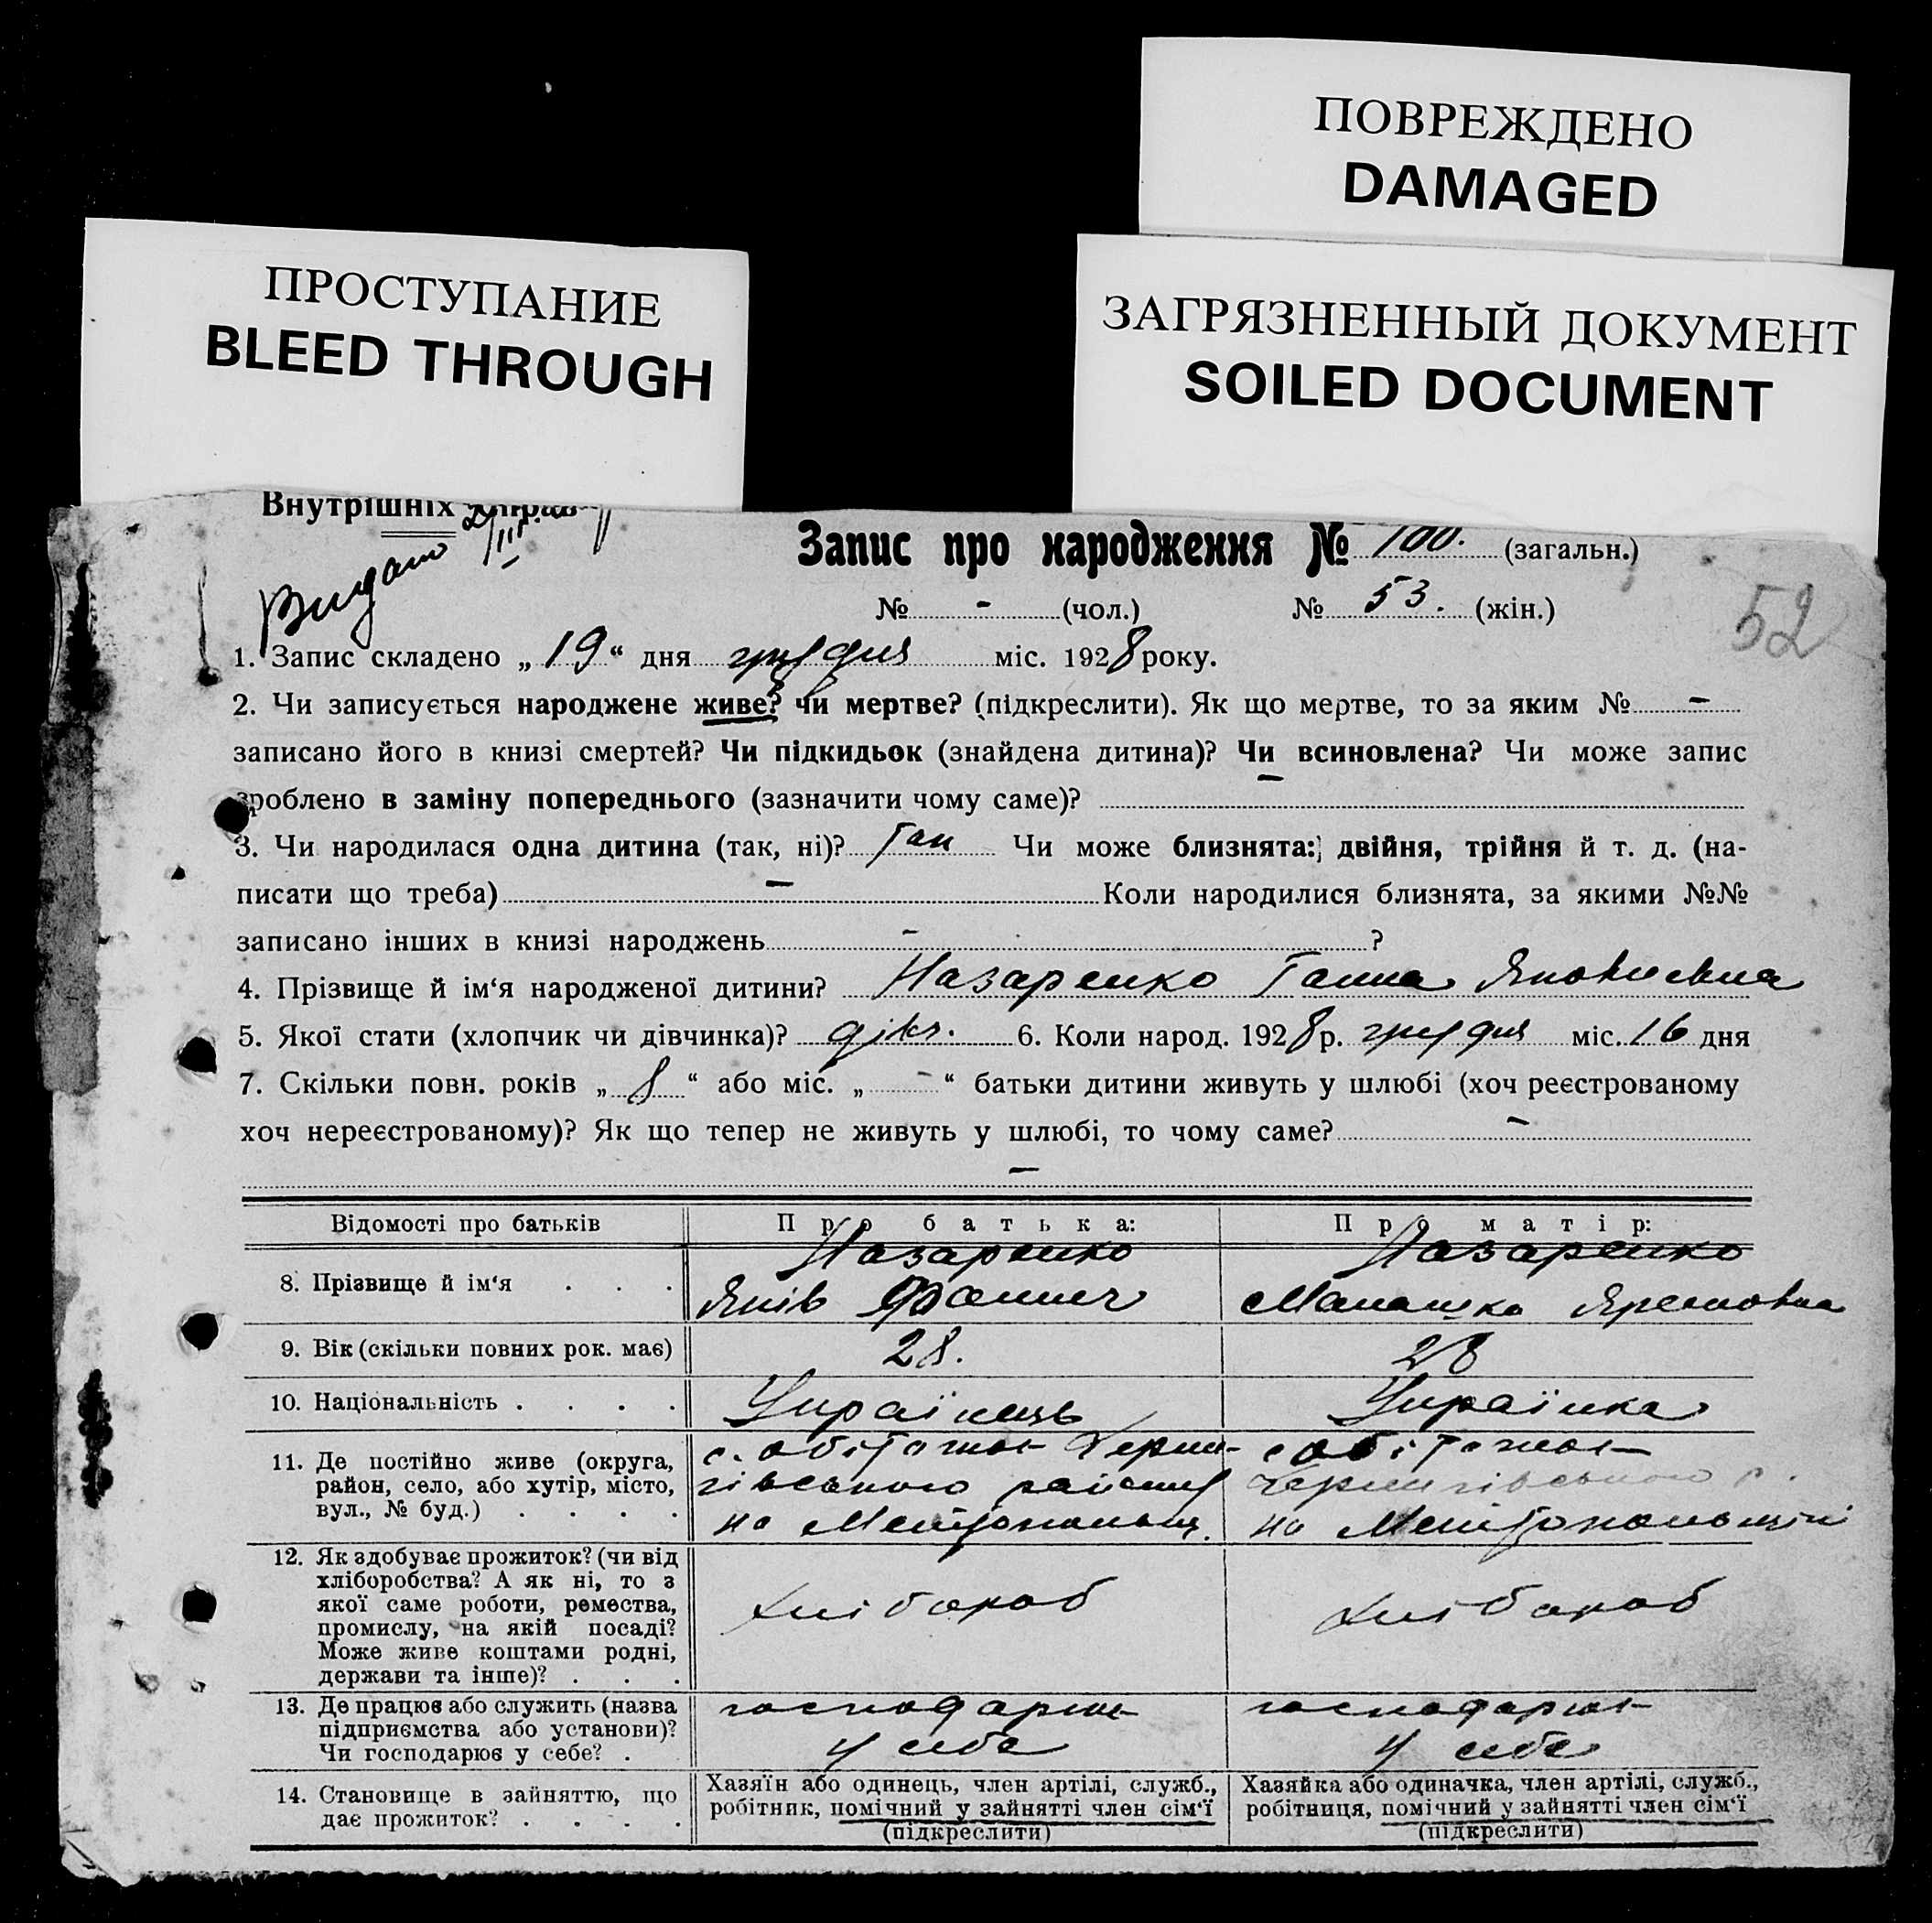 ПОВРЕЖДЕНО
DAMAGED
ПРОСТУПАНИЕ
BLEED THROUGH
ЗАГРЯЗНЕННЫЙ ДОКУМЕНТ
SOILED DOCUMENT
Внутрішніх Справ
Видано
Запис про народження № 100. (загальн.)
№ - (чол.) № 53. (жін.)
52
1. Запис складено „19“ дня грудня міс. 1928 року.
2. Чи записується народжене живе? чи мертве? (підкреслити). Як що мертве, то за яким № -
записано його в книзі смертей? Чи підкидьок (знайдена дитина)? Чи всиновлена? Чи може запис
зроблено в заміну попереднього (зазначити чому саме)? -
3. Чи народилася одна дитина (так, ні)? Так Чи може близнята: двійня, трійня й т. д. (на-
писати що треба) - Коли народилися близнята, за якими №№
записано інших в книзі народжень - ?
4. Прізвище й ім‘я народженої дитини? Назаренко Ганна Яковлевна
5. Якої стати (хлопчик чи дівчинка)? дівч. 6. Коли народ. 1928 р. грудня міс. 16 дня
7. Скільки повн. років „8“ або міс. „-“ батьки дитини живуть у шлюбі (хоч реєстрованому
хоч нереєстрованому)? Як що тепер не живуть у шлюбі, то чому саме? -
-
Відомості про батьків Про батька: Про матір:
8. Прізвище й ім‘я . . . Назаренко Яків Фомич Назаренко
9. Вік (скільки повних рок. має) 28. 28
10. Національність . . . . Українець Українка
11. Де постійно живе (округа, район, село, або хутір, місто, вул., № буд.) . . . . с. Обіточне Черни-
гівського району на Мелітопольщ. с Обіточне Чернигівського р. на Мелітопольщині
12. Як здобуває прожиток? (чи від хліборобства? А як ні, то з якої саме роботи, ремества, промислу, на якій посаді? Може живе коштами родні, держави та інше)? . . . хлібороб хлібороб
13. Де працює або служить (назва підприємства або установи)? Чи господарює у себе? . господарює у себе господарює у себе
14. Становище в зайняттю, що дає прожиток? . . . . Хазяїн або одинець, член артілі, служб., робітник, помічний у зайнятті член сім‘ї (підкреслити) Хазяйка або одиначка, член артілі, служб., робітниця, помічний у зайнятті член сім‘ї (підкреслити)